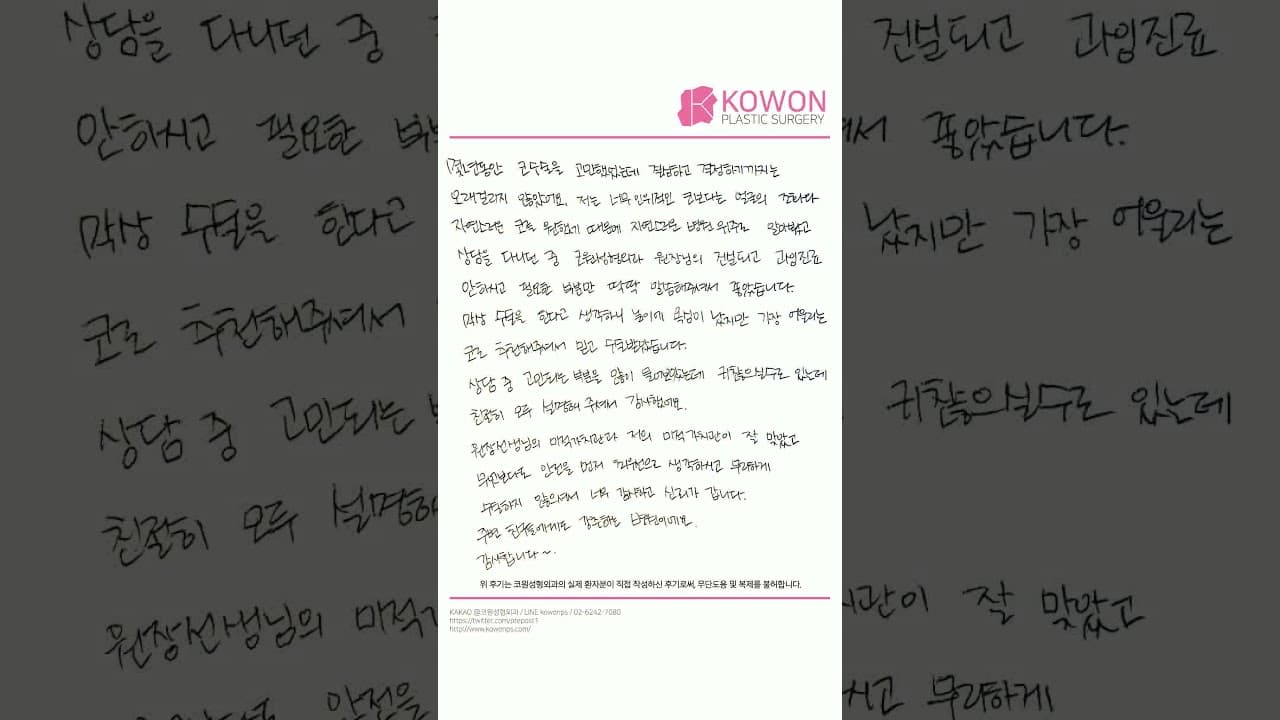 KOWON
PLASTIC SURGERY
몇년동안 코수술을 고민했었는데 결심하고 결정하기까지는
오래걸리지 않았어요. 저는 너무 인위적인 코보다는 얼굴의 조화와
자연스러운 코를 원했기 때문에 자연스러운 병원 위주로 알아봤고
상담을 다니던 중 코원성형외과 원장님의 컨설되고 과잉진료
안하시고 필요한 부분만 딱딱 말씀해주셔서 좋았습니다.
막상 수술을 한다고 생각하니 높이에 욕심이 났지만 가장 어울리는
코로 추천해주셔서 믿고 수술받았습니다.
상담 중 고민되는 부분을 많이 물어봤었는데 귀찮으실수도 있는데
친절히 모두 설명해 주셔서 감사했네요.
원장선생님의 미적가치관과 저의 미적가치관이 잘 맞았고
무엇보다도 안전을 먼저 최우선으로 생각하시고 무리하게
수술하지 않으셔서 너무 감사하고 신뢰가 갑니다.
주변 친구들에게도 강추하는 병원이에요.
감사합니다~.
위 후기는 코원성형외과의 실제 환자분이 직접 작성하신 후기로써, 무단도용 및 복제를 불허합니다.
KAKAO @코원성형외과 / LINE kowonps / 02-6242-7080
https://twitter.com/ptepost1
http://www.kowonps.com/